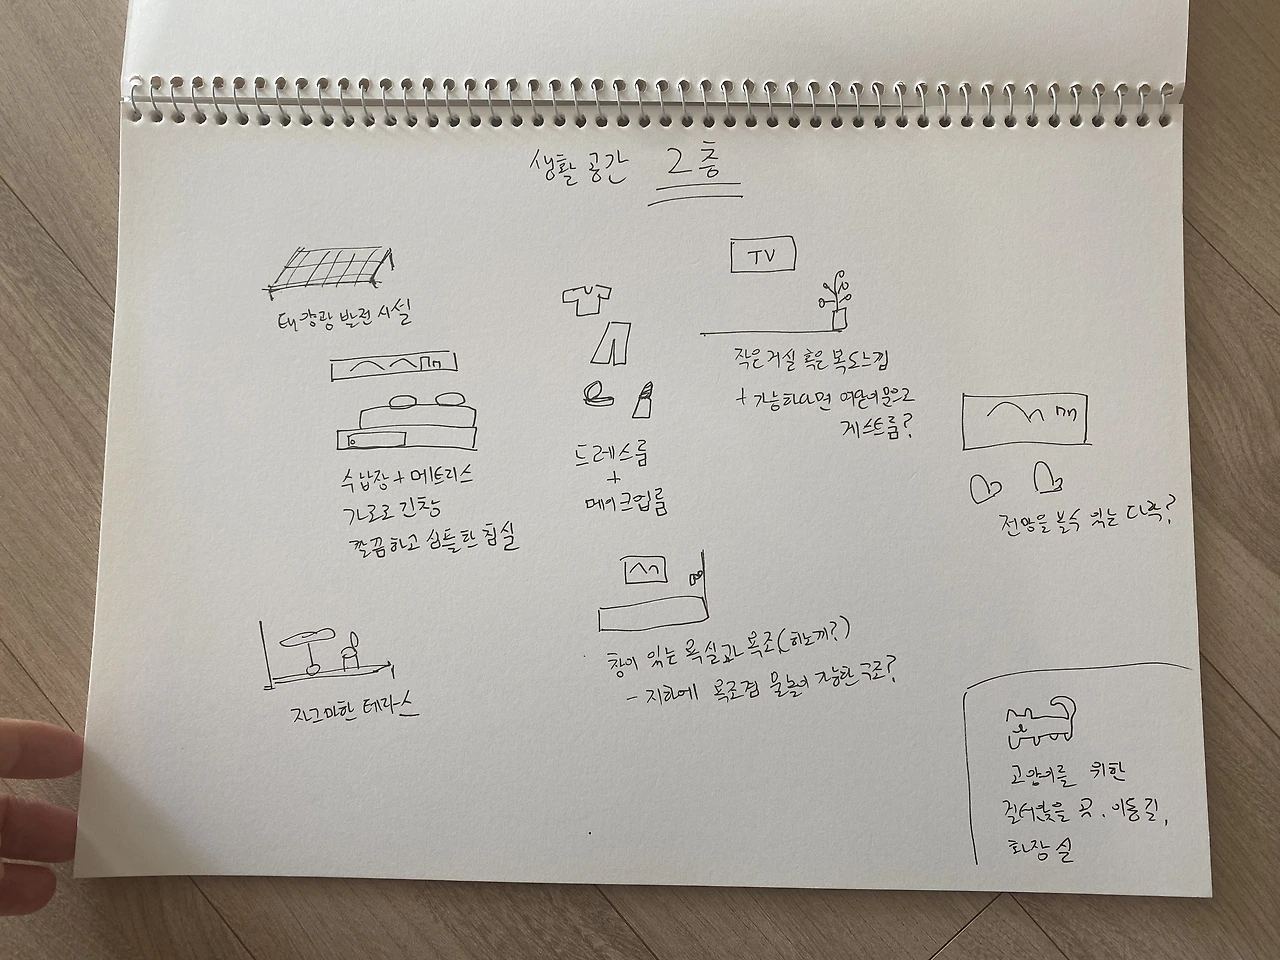 생활 공간 2층
태양광 발전 시설
수납장 + 메트리스
가로로 긴창
깔끔하고 심플한 침실
드레스룸
+
메이크업룸
TV
작은 거실 혹은 복도느낌
+ 가능하다면 여닫이문으로
게스트룸?
전망을 볼수 있는 다락?
자그마한 테라스
창이 있는 욕실과 욕조(히노끼?)
- 지하에 욕조겸 물놀이 가능한 구조?
고양이를 위한
걸터앉을 곳, 이동길,
화장실